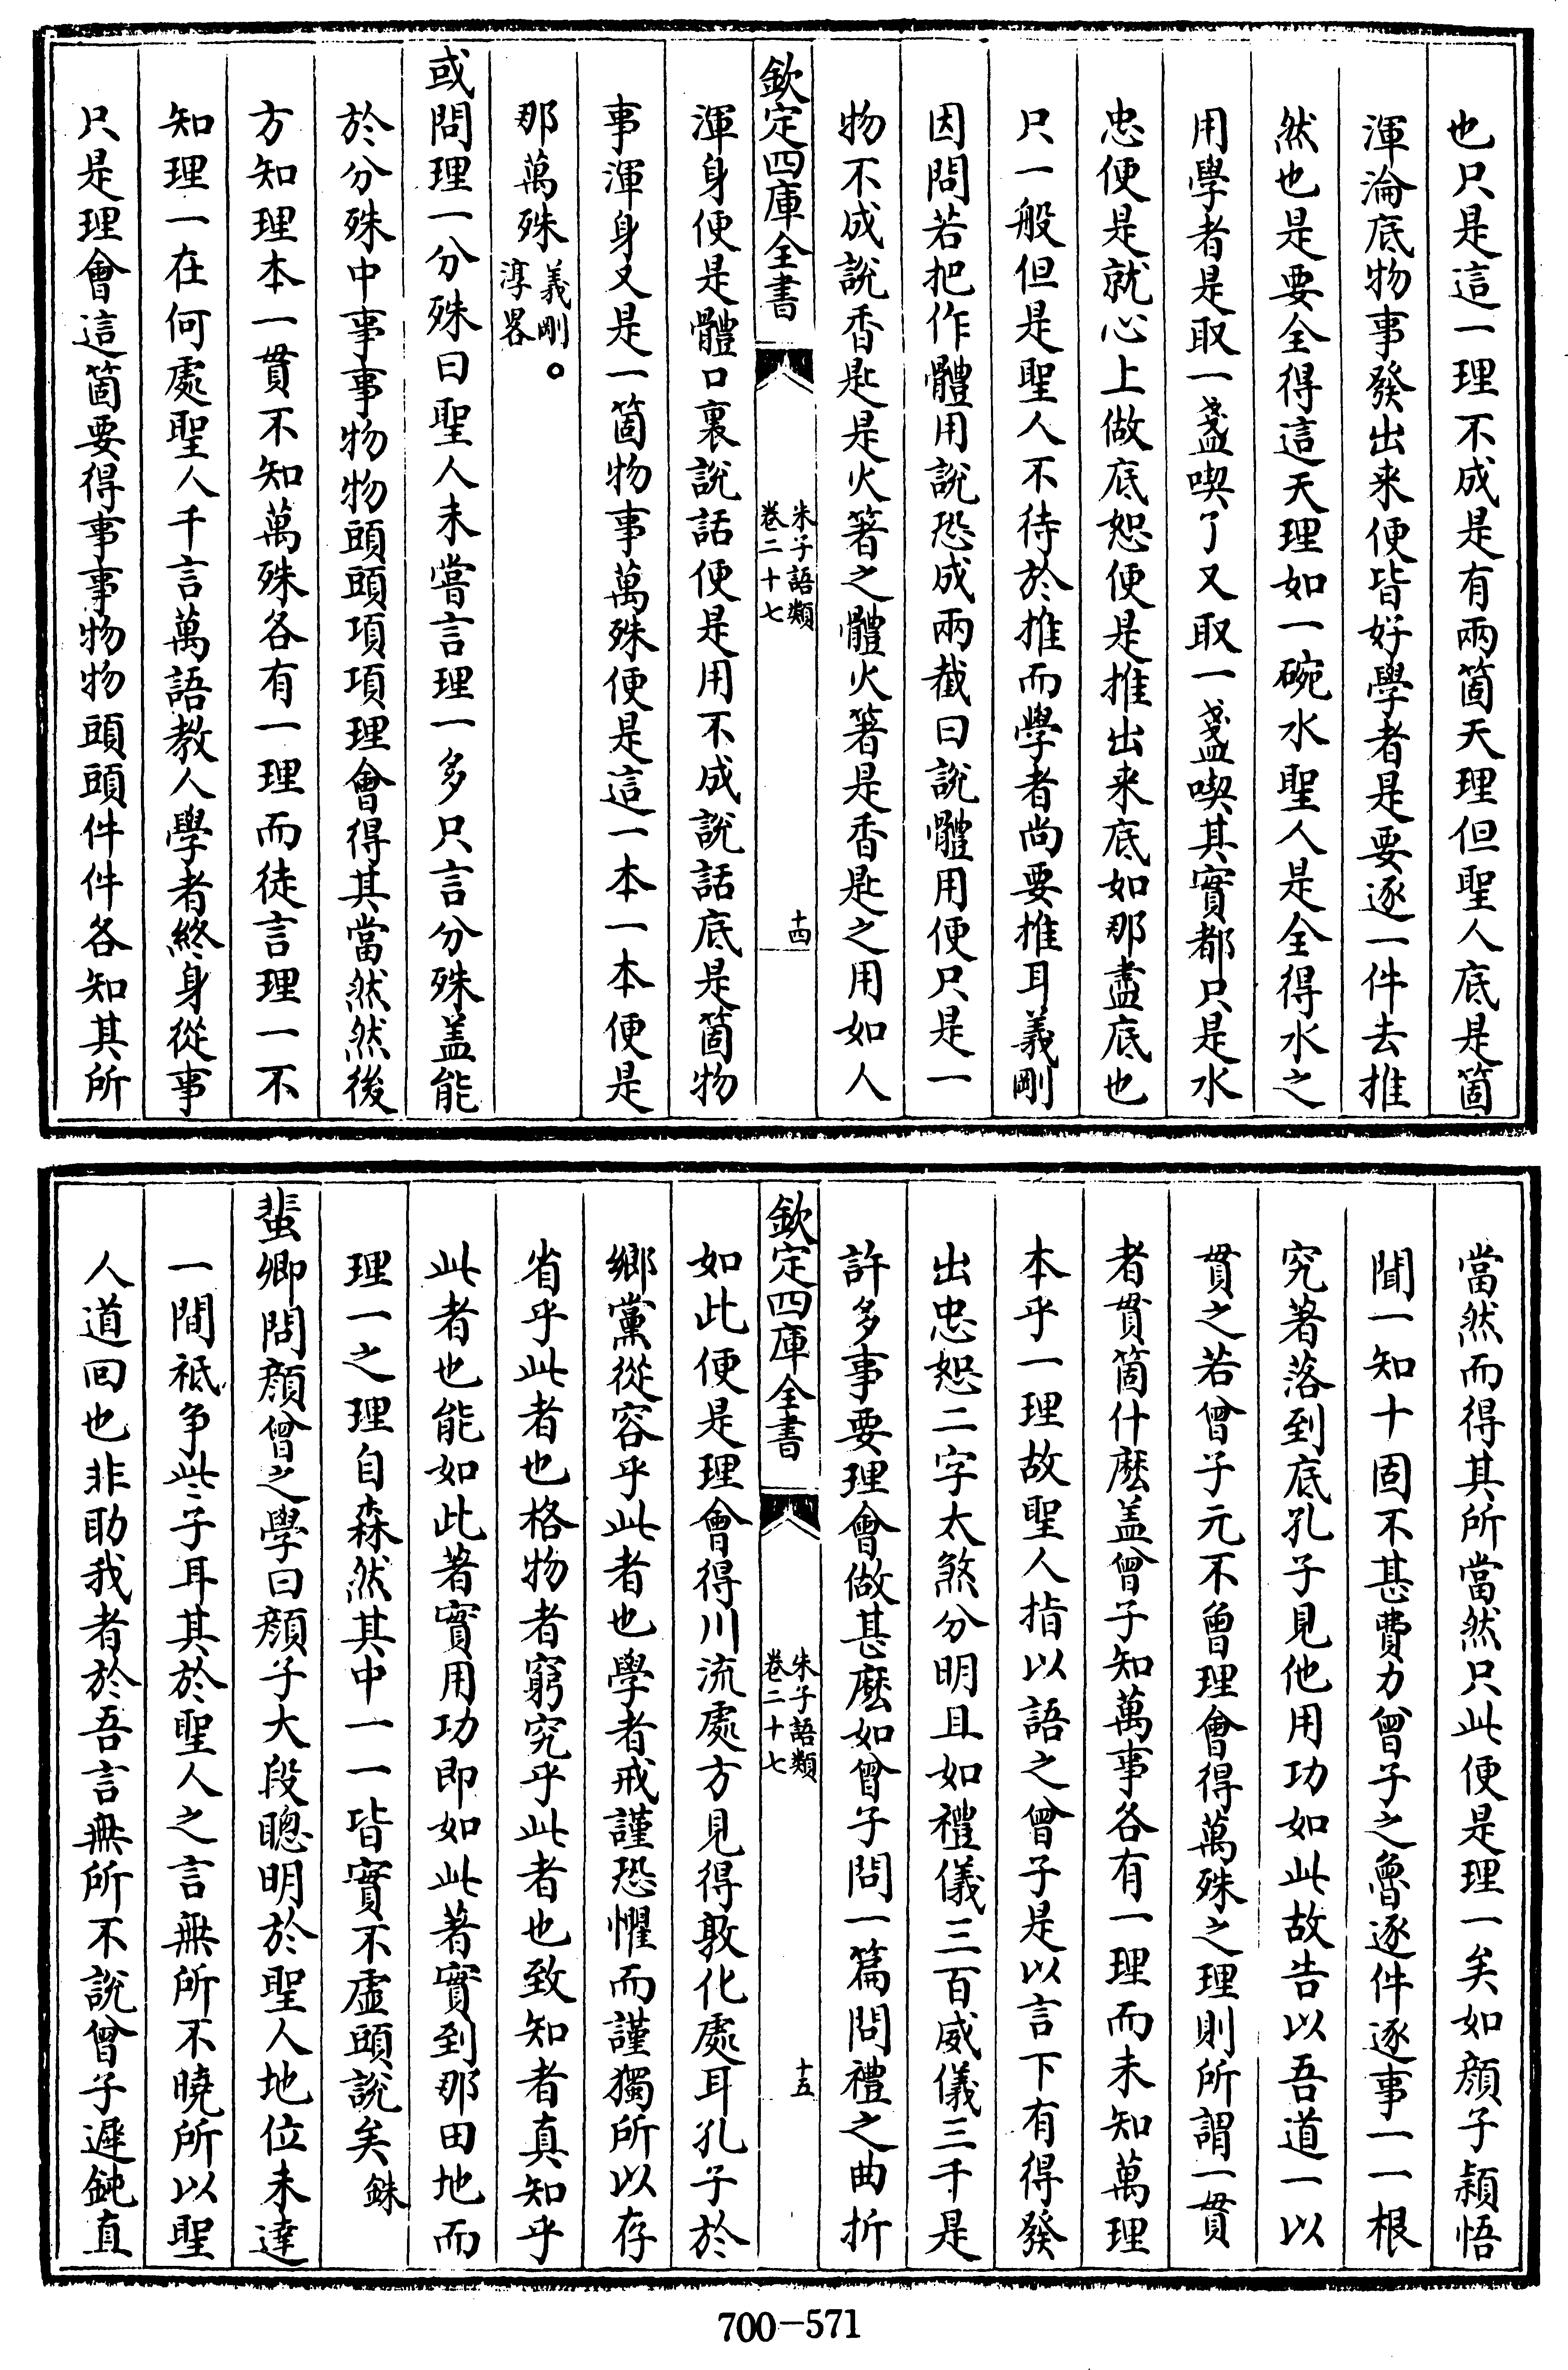 也只是這一理不成是有兩箇天理但聖人底是箇
渾淪底物事發出来便皆好學者是要逐一件去推
然也是要全得這天理如一碗水聖人是全得水之
用學者是取一盞喫了又取一盞喫其實都只是水
忠便是就心上做底恕便是推出来底如那盡底也
只一般但是聖人不待於推而學者尚要推耳義剛
因問若把作體用說恐成兩截曰說體用便只是一
物不成說香匙是火箸之體火箸是香匙之用如人
欽定四庫全書
朱子語類
卷二十七
十四
渾身便是體口裏說話便是用不成說話底是箇物
事渾身又是一箇物事萬殊便是這一本一本便是
那萬殊義剛。淳畧
或問理一分殊曰聖人未嘗言理一多只言分殊盖能
於分殊中事事物物頭頭項項理會得其當然然後
方知理本一貫不知萬殊各有一理而徒言理一不
知理一在何處聖人千言萬語教人學者終身從事
只是理會這箇要得事事物物頭頭件件各知其所
當然而得其所當然只此便是理一矣如顏子穎悟
聞一知十固不甚費力曾子之魯逐件逐事一一根
究著落到底孔子見他用功如此故告以吾道一以
貫之若曾子元不曾理會得萬殊之理則所謂一貫
者貫箇什麽盖曾子知萬事各有一理而未知萬理
本乎一理故聖人指以語之曾子是以言下有得發
出忠恕二字太煞分明且如禮儀三百威儀三千是
許多事要理會做甚麽如曾子問一篇問禮之曲折
欽定四庫全書
朱子語類
卷二十七
十五
如此便是理會得川流處方見得敦化處耳孔子於
鄉黨從容乎此者也學者戒謹恐懼而謹獨所以存
省乎此者也格物者窮究乎此者也致知者真知乎
此者也能如此著實用功即如此著實到那田地而
理一之理自森然其中一一皆實不虛頭說矣銖
蜚卿問顏曾之學曰顏子大段聰明於聖人地位未達
一間祗争些子耳其於聖人之言無所不曉所以聖
人道回也非助我者於吾言無所不說曾子遲鈍直
700-571